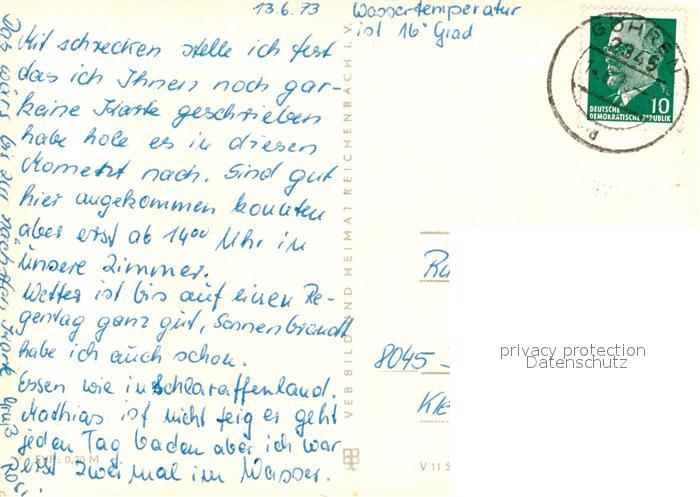 13.6.73
Wassertemperatur
ist 16° Grad
Mit schrecken stelle ich fest
das ich Ihnen noch gar-
keine Karte geschrieben
habe hole es in diesen
Moment nach. Sind gut
hier angekommen konnten
aber erst ab 14⁰⁰ Uhr in
unsere Zimmer.
Wetter ist bis auf einen Re-
gentag ganz gut, Sonnenbrandt
habe ich auch schon.
Essen wie in schlaraffenland.
Mathias ist nicht feig er geht
jeden Tag baden aber ich war
erst zweimal im Wasser.
Das wärs bis zum nächsten Gruß
EVP: 0,20 M
VEB BILD UND HEIMAT REICHENBACH I. V.
V 11 5
GÖHREN
2345
DEUTSCHE
DEMOKRATISCHE REPUBLIK
10
8045
privacy protection
Datenschutz